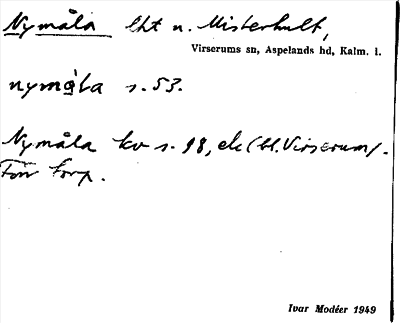 Nymåla lht u. Misterhult,
Virserums sn, Aspelands hd, Kalm. l.
nymåla s. 53.
Nymåla kv s. 98, ek (bl. Virserum).
Förr torp.
Ivar Modéer 1949